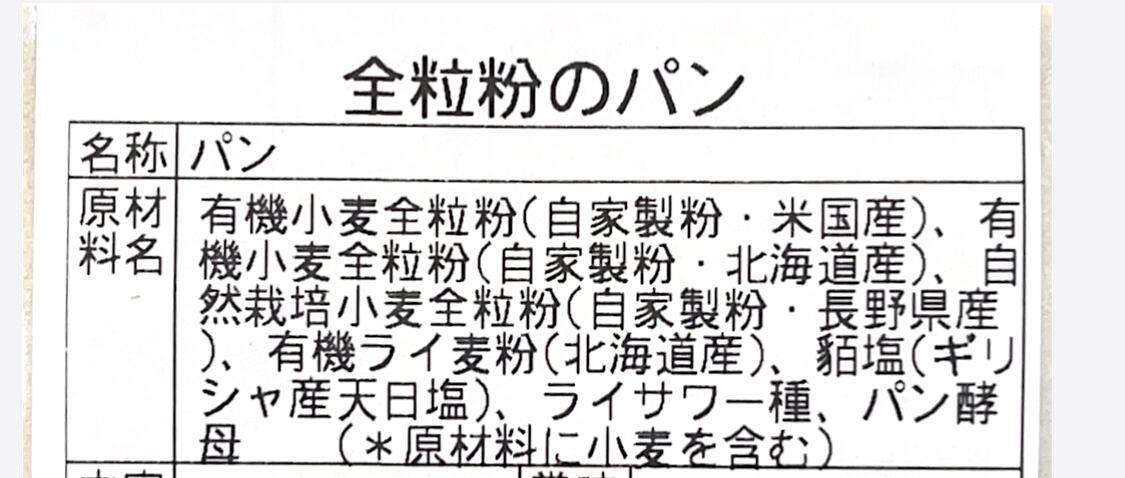 全粒粉のパン
名称 パン
原材料名 有機小麦全粒粉(自家製粉・米国産)、有
機小麦全粒粉(自家製粉・北海道産)、自
然栽培小麦全粒粉(自家製粉・長野県産
)、有機ライ麦粉(北海道産)、貊塩(ギリ
シャ産天日塩)、ライサワー種、パン酵
母 (*原材料に小麦を含む)